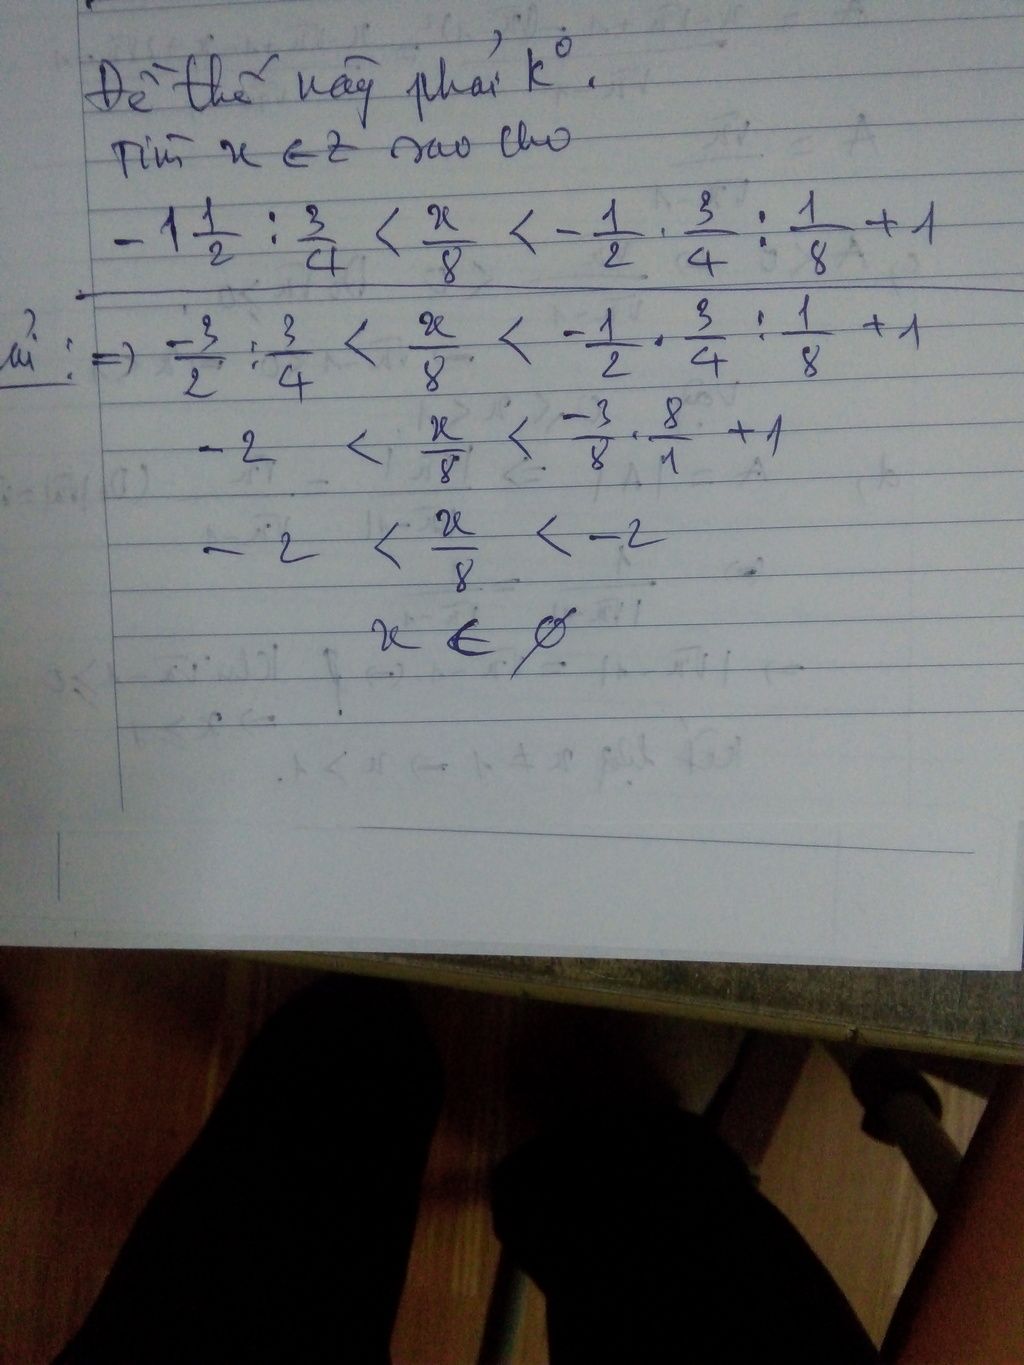 Đề thế này phải k⁰.
Tìm x ∈ Z sao cho
-1 1/2 : 3/4 < x/8 < -1/2 . 3/4 : 1/8 + 1
: => -3/2 : 3/4 < x/8 < -1/2 . 3/4 : 1/8 + 1
-2 < x/8 < -3/8 . 8/1 + 1
-2 < x/8 < -2
x ∈ ∅